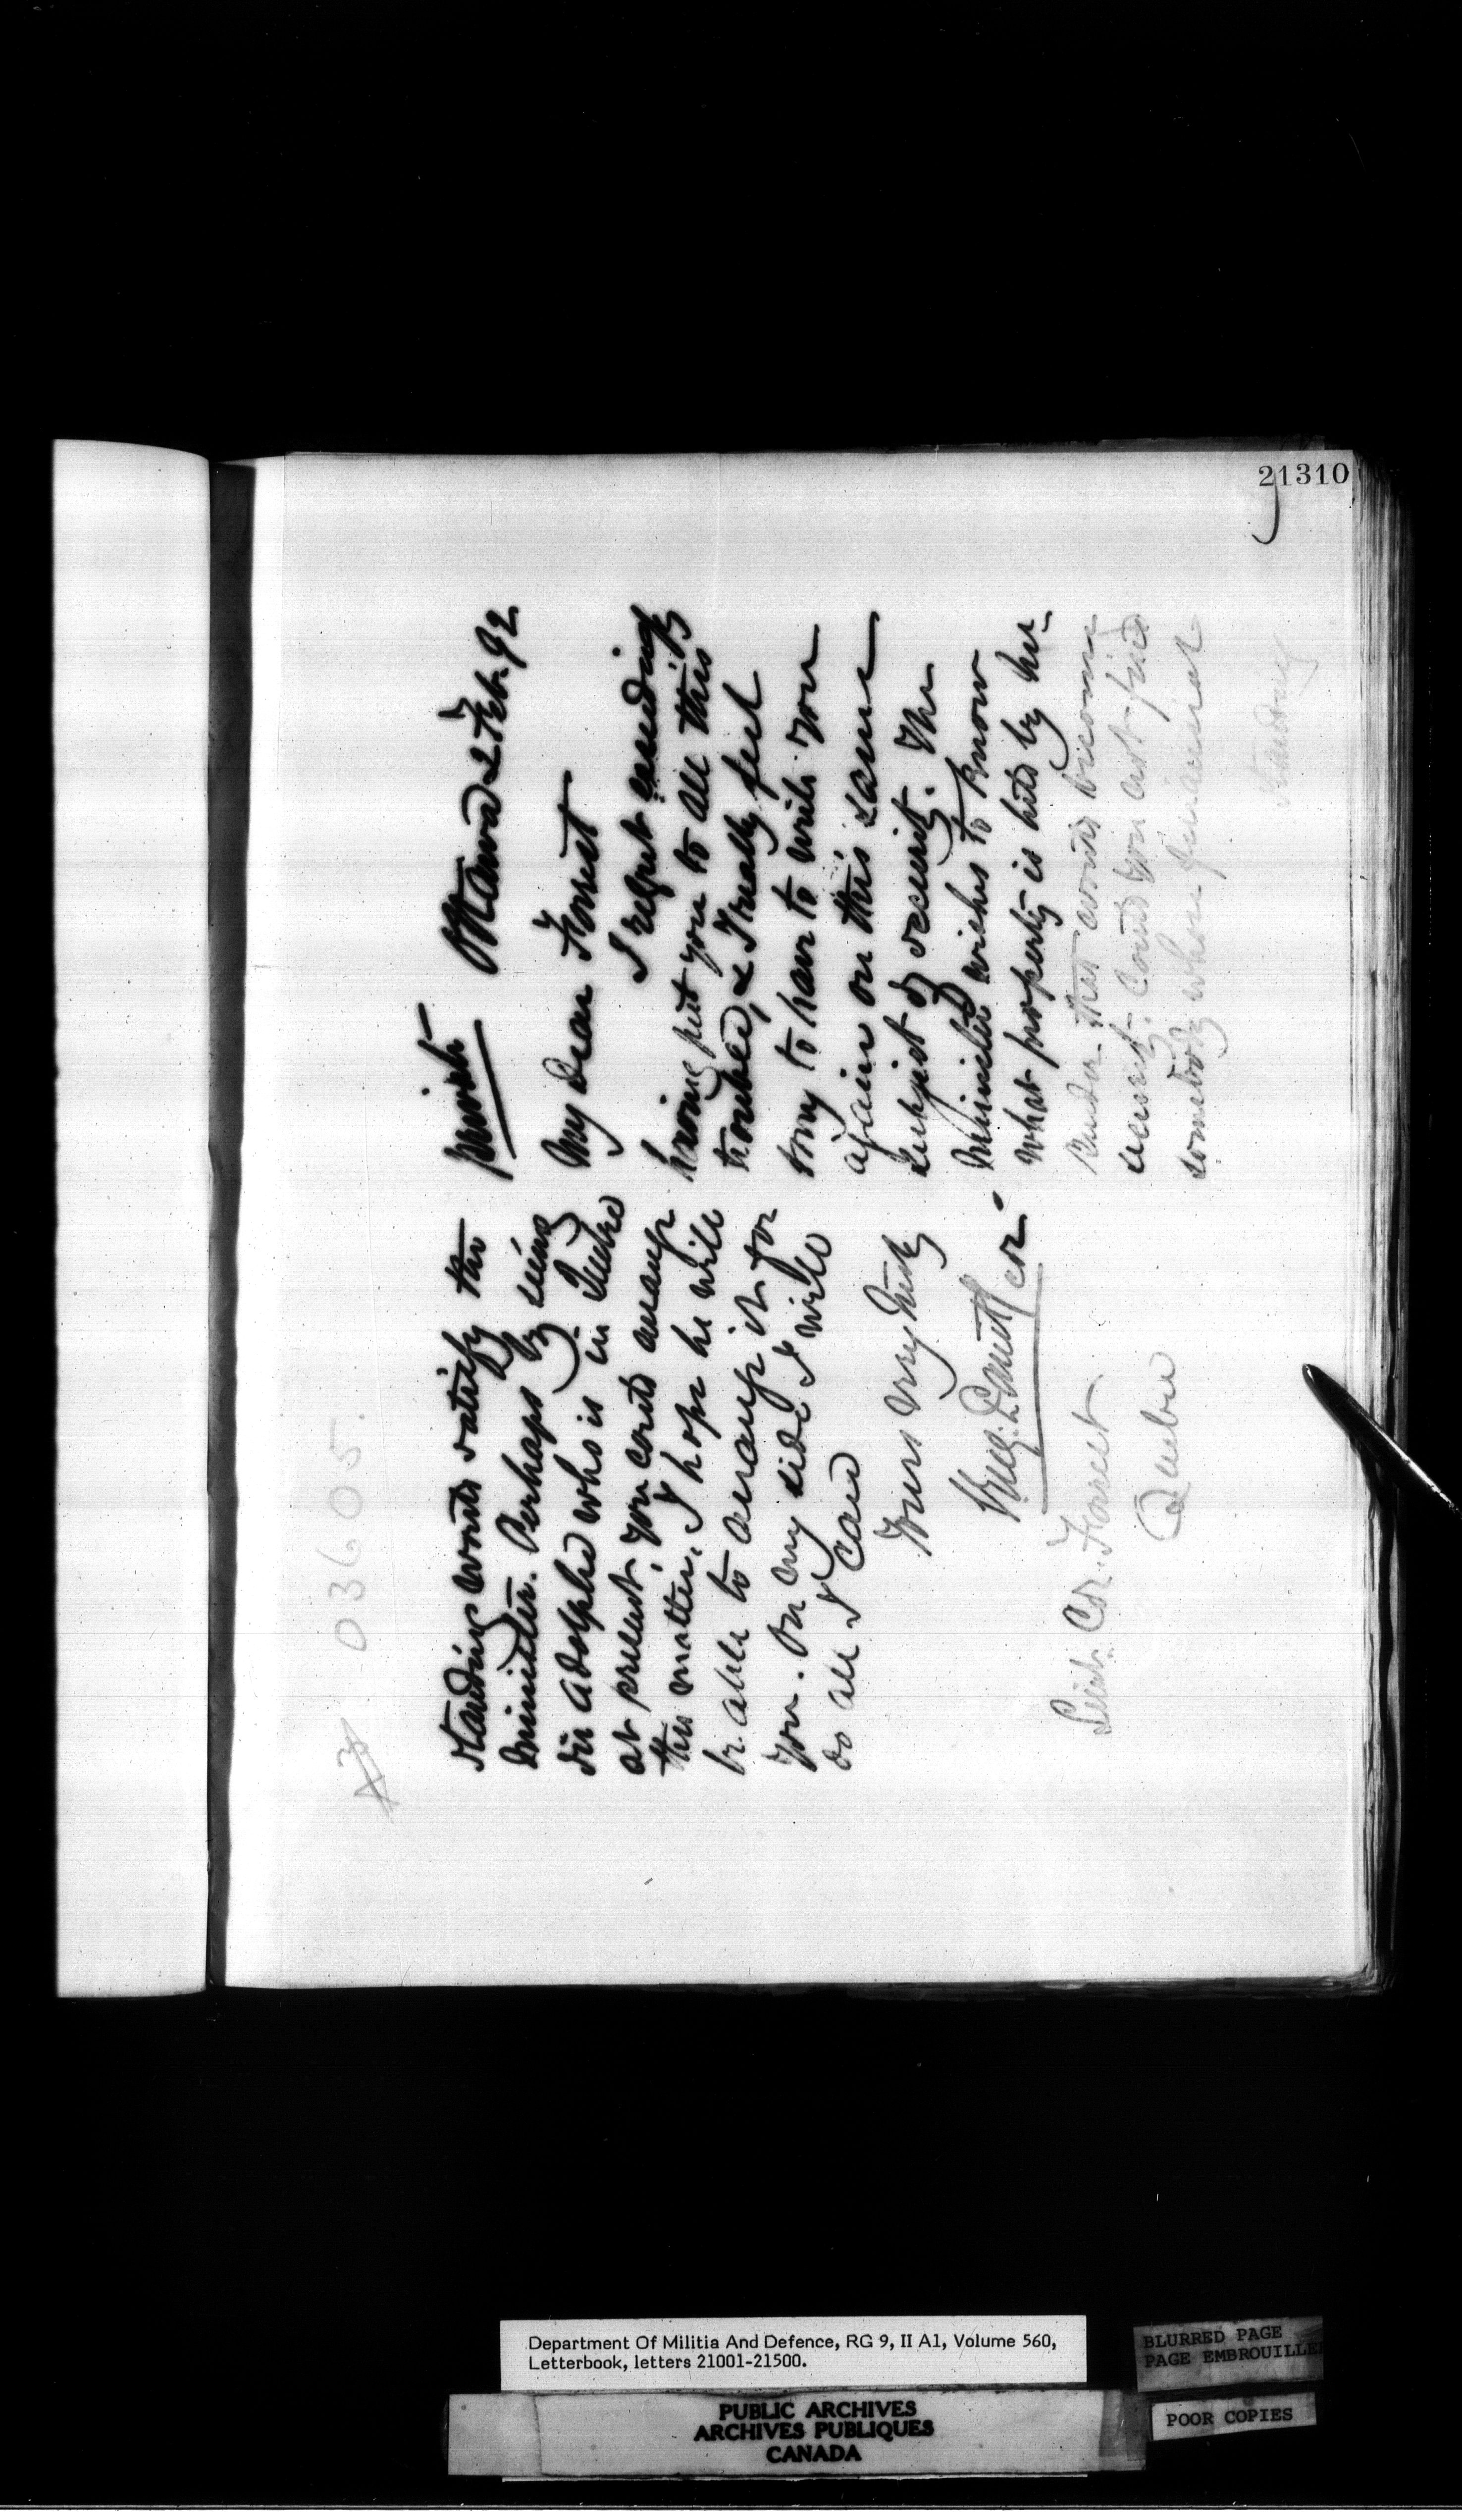 21310
Private
Ottawa 2 Feb. 92
My dear Forrest
I regret exceedingly
having put you to all this
trouble, & I really feel
sorry to have to write you
again on this same
subject of security. The
Minister wishes to know
what property is held by her
that would become
security. Could you not find
somebody whose financial
standing
standing would satisfy the
Minister. Perhaps by seeing
Sir Adolphe who is in Quebec
at present, you could arrange
this matter. I hope he will
be able to arrange it for
you. On my side I will
do all I can
Yours very truly
Col.
Lieut. Col. Forrest
Quebec
03605
Department Of Militia And Defence, RG 9, II A1, Volume 560,
Letterbook, letters 21001-21500.
BLURRED PAGE
PAGE EMBROUILLEE
POOR COPIES
PUBLIC ARCHIVES
ARCHIVES PUBLIQUES
CANADA